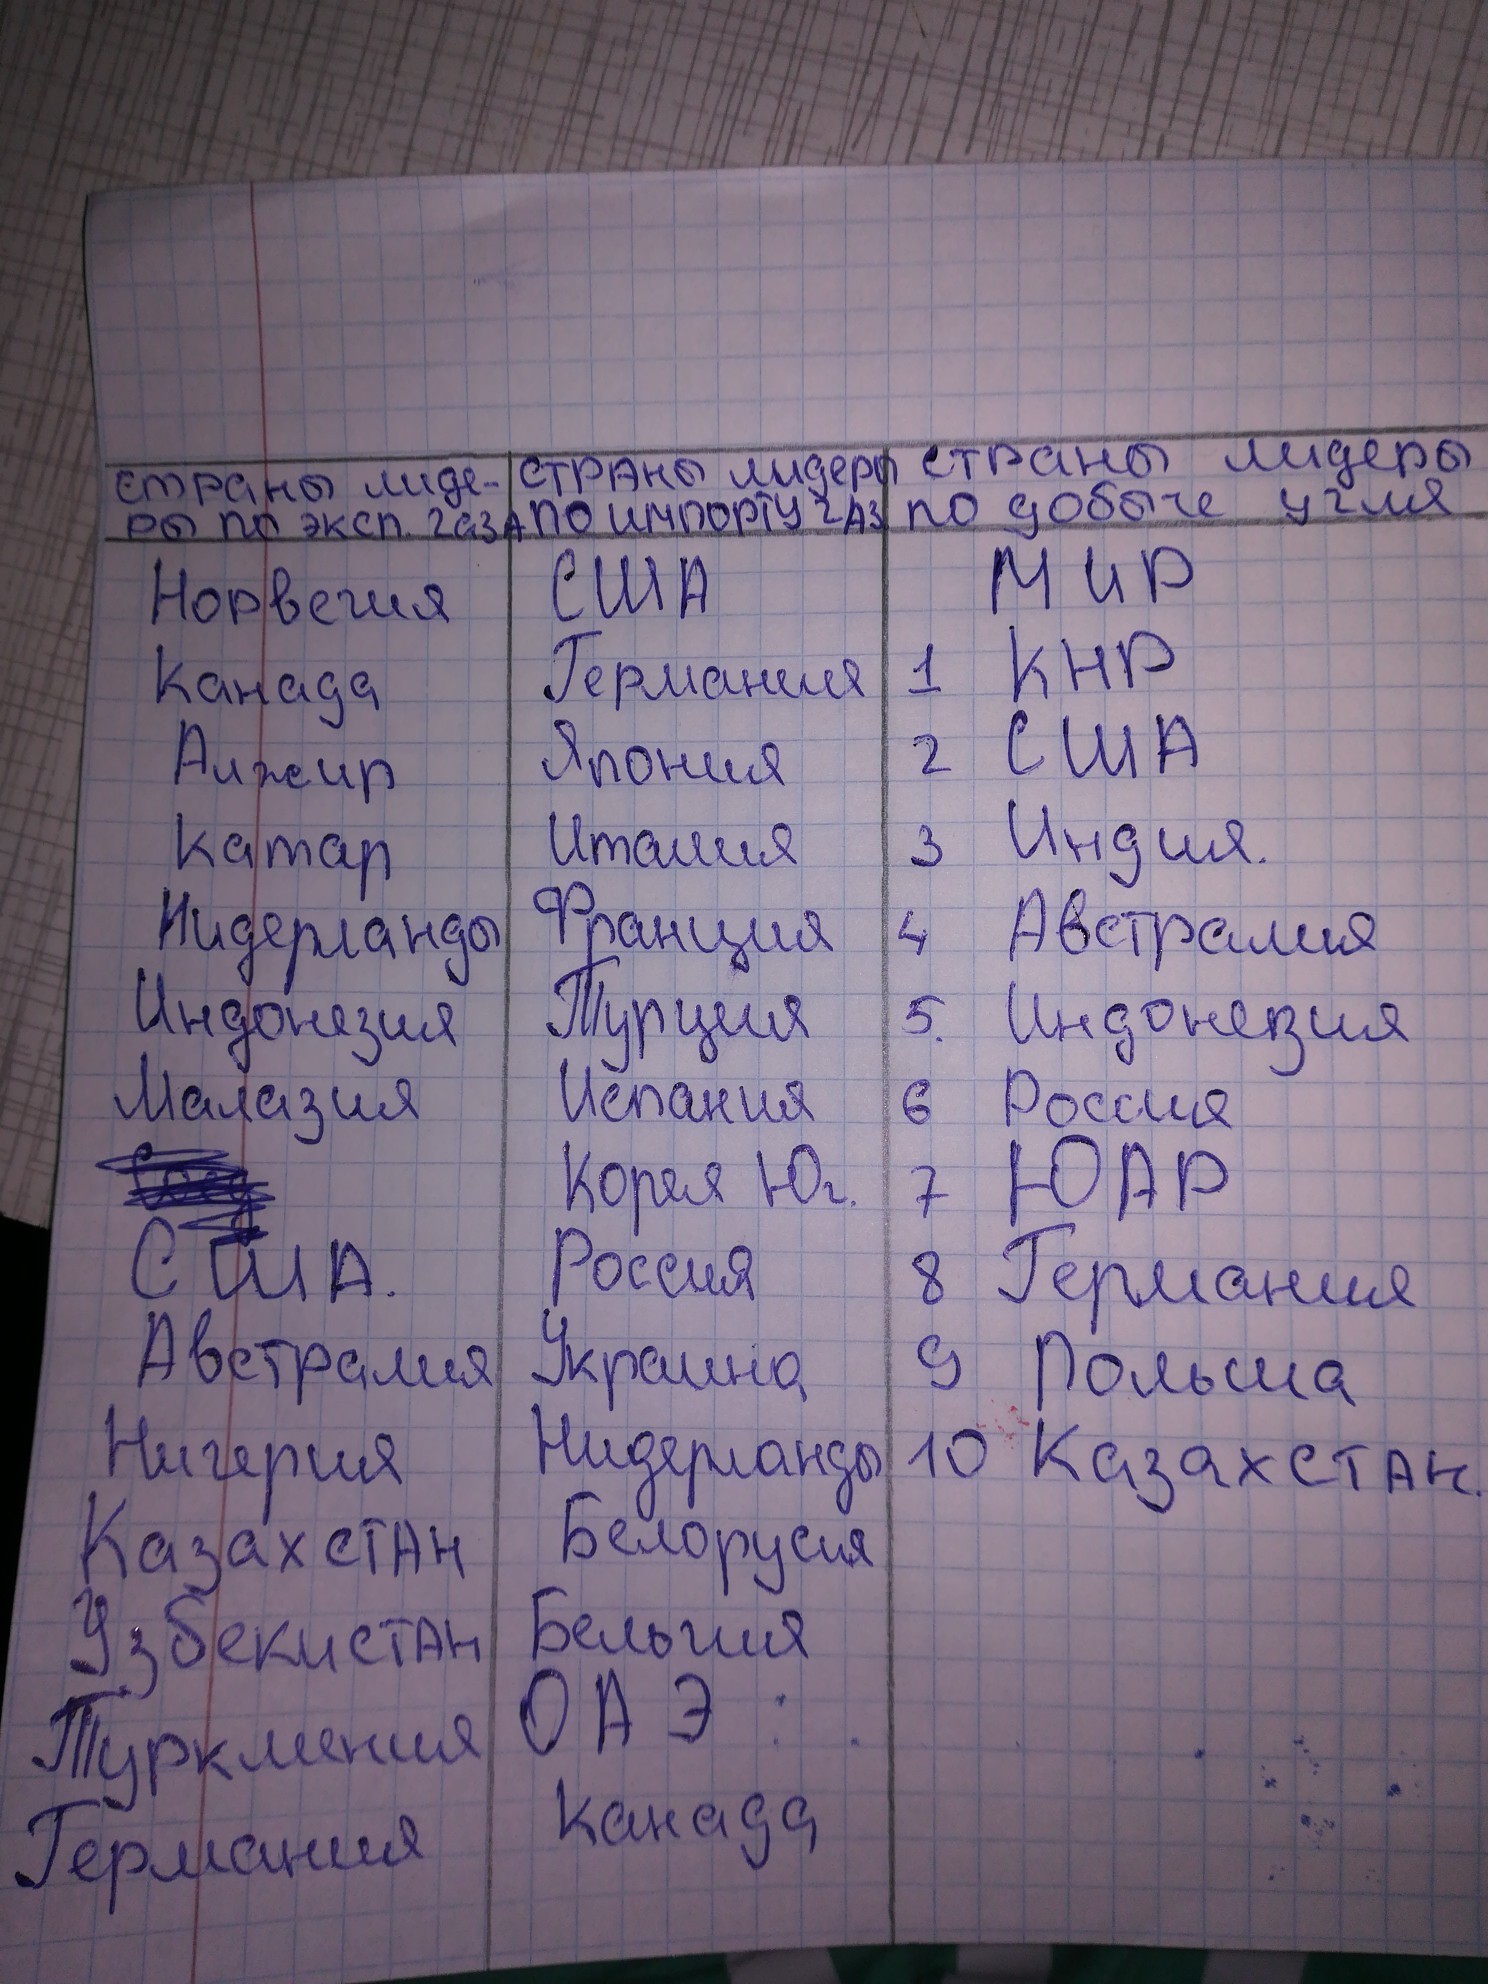 страны лиде- страны лидеры страны лидеры
ры по эксп. газа по импорту газ по добыче угля
Норвегия США МИР
Канада Германия 1 КНР
Алжир Япония 2 США
Катар Италия 3 Индия.
Нидерланды Франция 4 Австралия
Индонезия Турция 5. Индонезия
Малазия Испания 6 Россия
Корея Юг. 7 ЮАР
США. Россия 8 Германия
Австралия Украина 9 Польша
Нигерия Нидерланды 10 Казахстан.
Казахстан Белорусия
Узбекистан Бельгия
Туркмения ОАЭ
Германия Канада